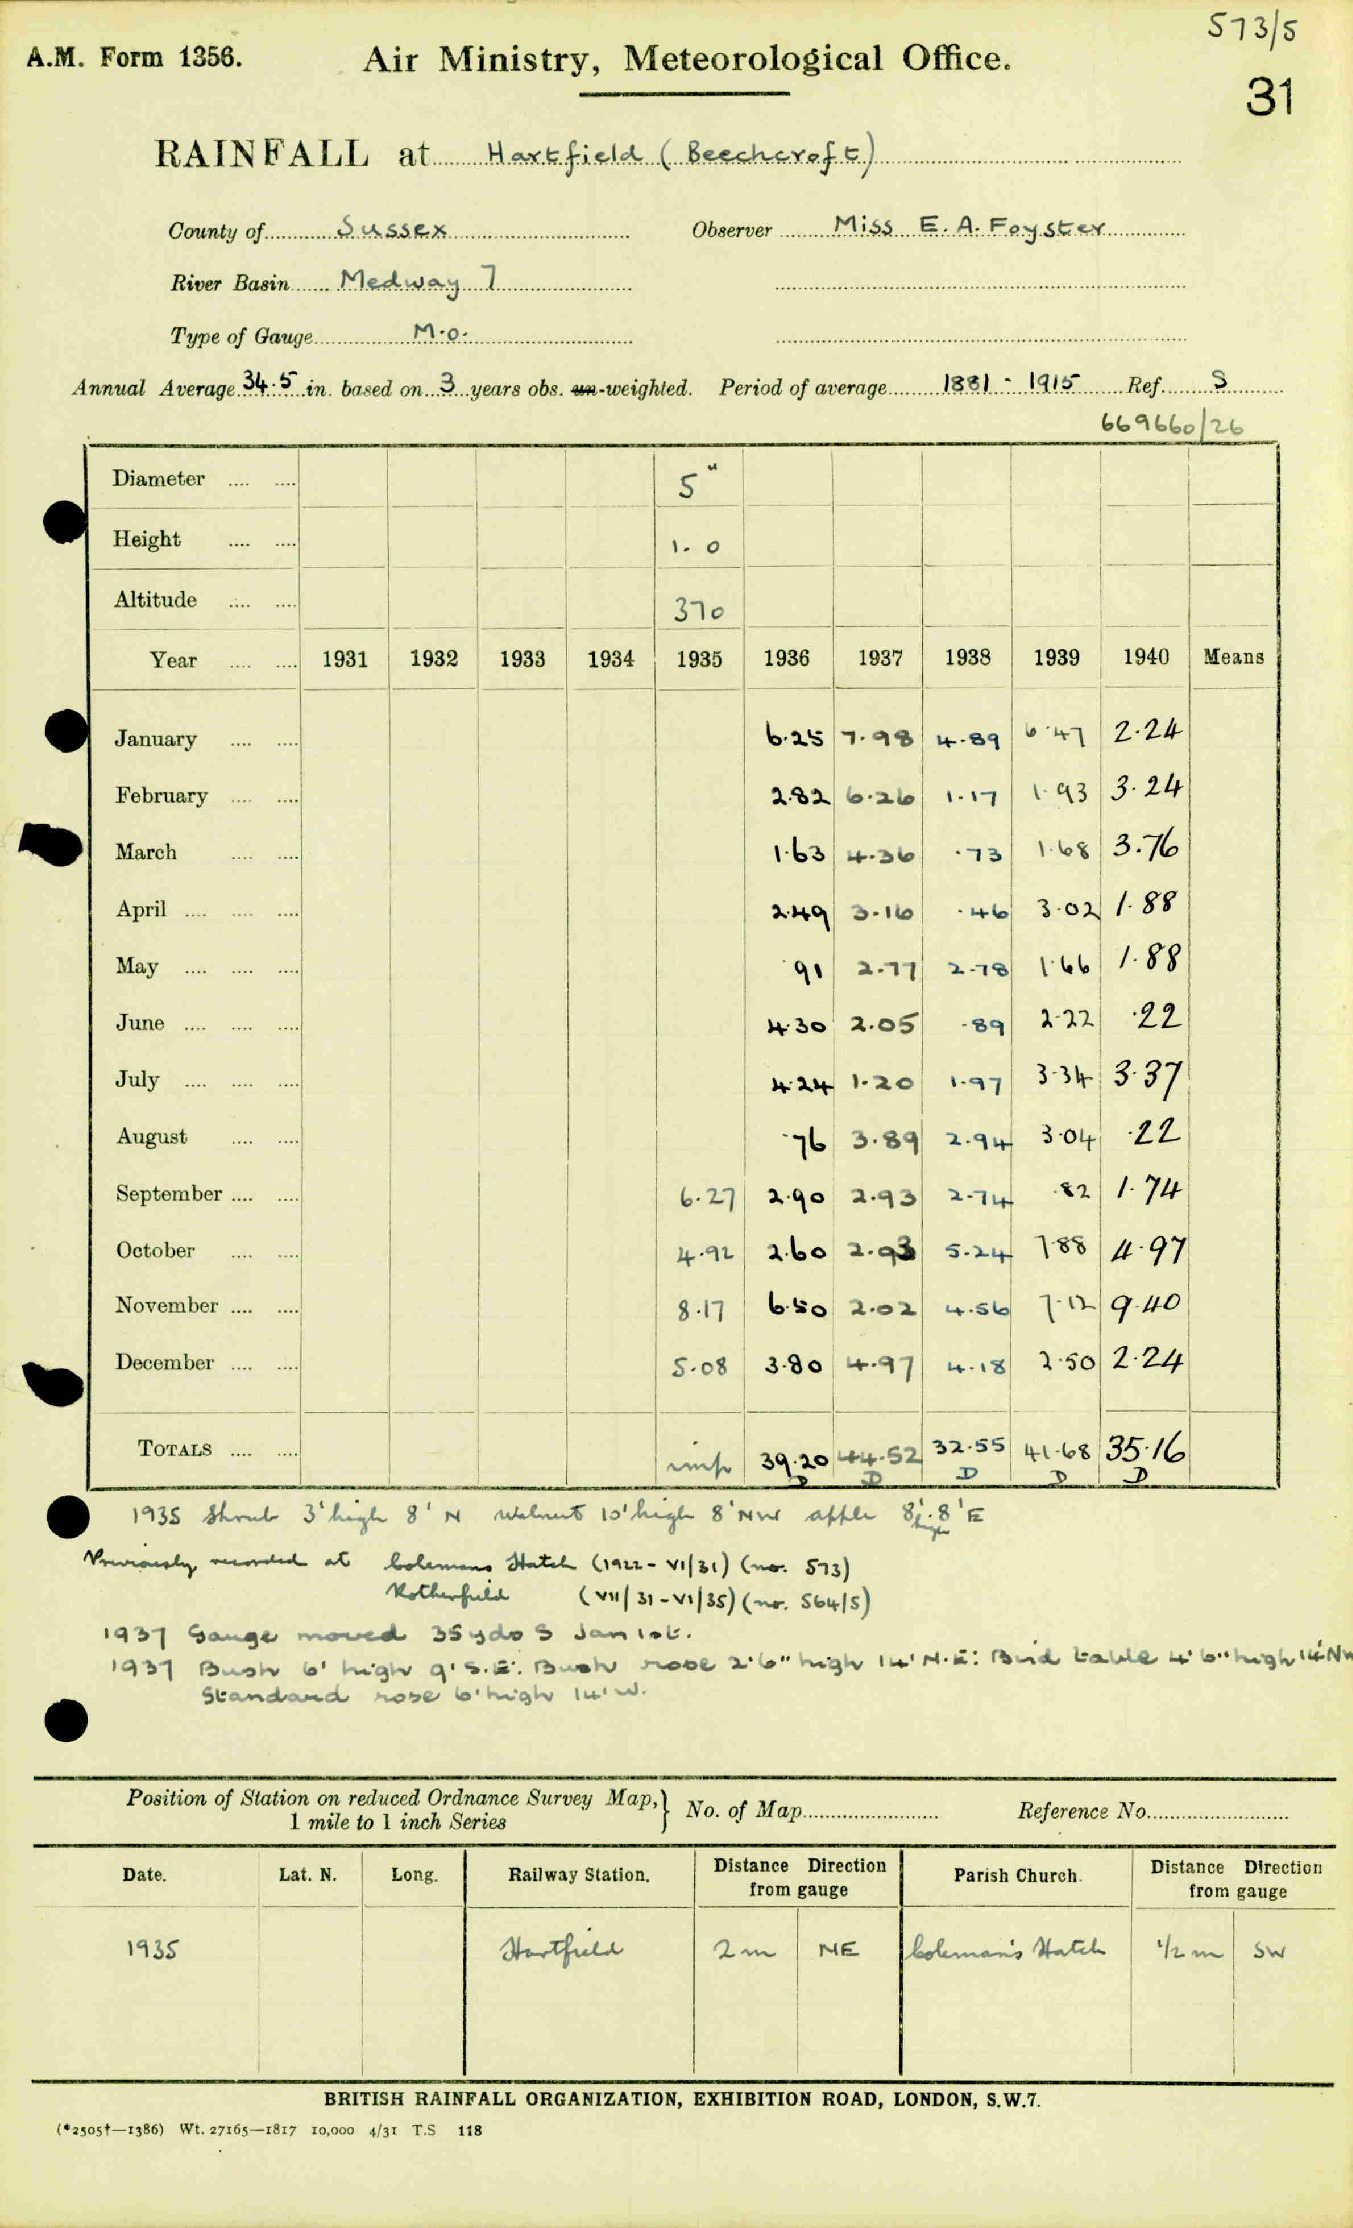 573/5
A.M. Form 1356. Air Ministry, Meteorological Office.
31
RAINFALL at Hartfield (Beechcroft)
County of Sussex Observer Miss E. A. Foyster
River Basin Medway 7
Type of Gauge M.O.
Annual Average 34.5 in. based on 3 years obs. un-weighted. Period of average 1881 - 1915 Ref. S
669660/26
Diameter .... .... 5"
Height .... .... 1.0
Altitude .... .... 370
Year .... .... 1931 1932 1933 1934 1935 1936 1937 1938 1939 1940 Means
January .... .... 6.25 7.98 4.89 6.47 2.24
February .... .... 2.82 6.26 1.17 1.93 3.24
March .... .... 1.63 4.36 .73 1.68 3.76
April .... .... .... 2.49 3.16 .46 3.02 1.88
May .... .... .... .91 2.77 2.78 1.66 1.88
June .... .... .... 4.30 2.05 .89 2.22 .22
July .... .... .... 4.24 1.20 1.97 3.34 3.37
August .... .... .76 3.89 2.94 3.04 .22
September .... .... 6.27 2.90 2.93 2.74 .82 1.74
October .... .... 4.92 2.60 2.93 5.24 7.88 4.97
November .... .... 8.17 6.50 2.02 4.56 7.12 9.40
December .... .... 5.08 3.80 4.97 4.18 2.50 2.24
TOTALS .... .... imp 39.20 44.52 32.55 41.68 35.16
D D D D D
1935 Shrub 3' high 8' N Walnut 10' high 8' NW apple 8' high 8' E
Previously recorded at Colemans Hatch (1922 - VI/31) (no. 573)
Rotherfield (VII/31 - VI/35) (no. 564/5)
1937 Gauge moved 35 yds S Jan 1st.
1937 Bush 6' high 9' S.E: Bush rose 2'6" high 14' N.E: Bird table 4'6" high 14' NW
Standard rose 6' high 14' W.
Position of Station on reduced Ordnance Survey Map, } No. of Map Reference No.
1 mile to 1 inch Series
Date. Lat. N. Long. Railway Station. Distance Direction from gauge Parish Church. Distance Direction from gauge
1935 Hartfield 2 m NE Coleman's Hatch 1/2 m SW
BRITISH RAINFALL ORGANIZATION, EXHIBITION ROAD, LONDON, S.W.7.
(*2505†—1386) Wt. 27165—1817 10,000 4/31 T.S 118